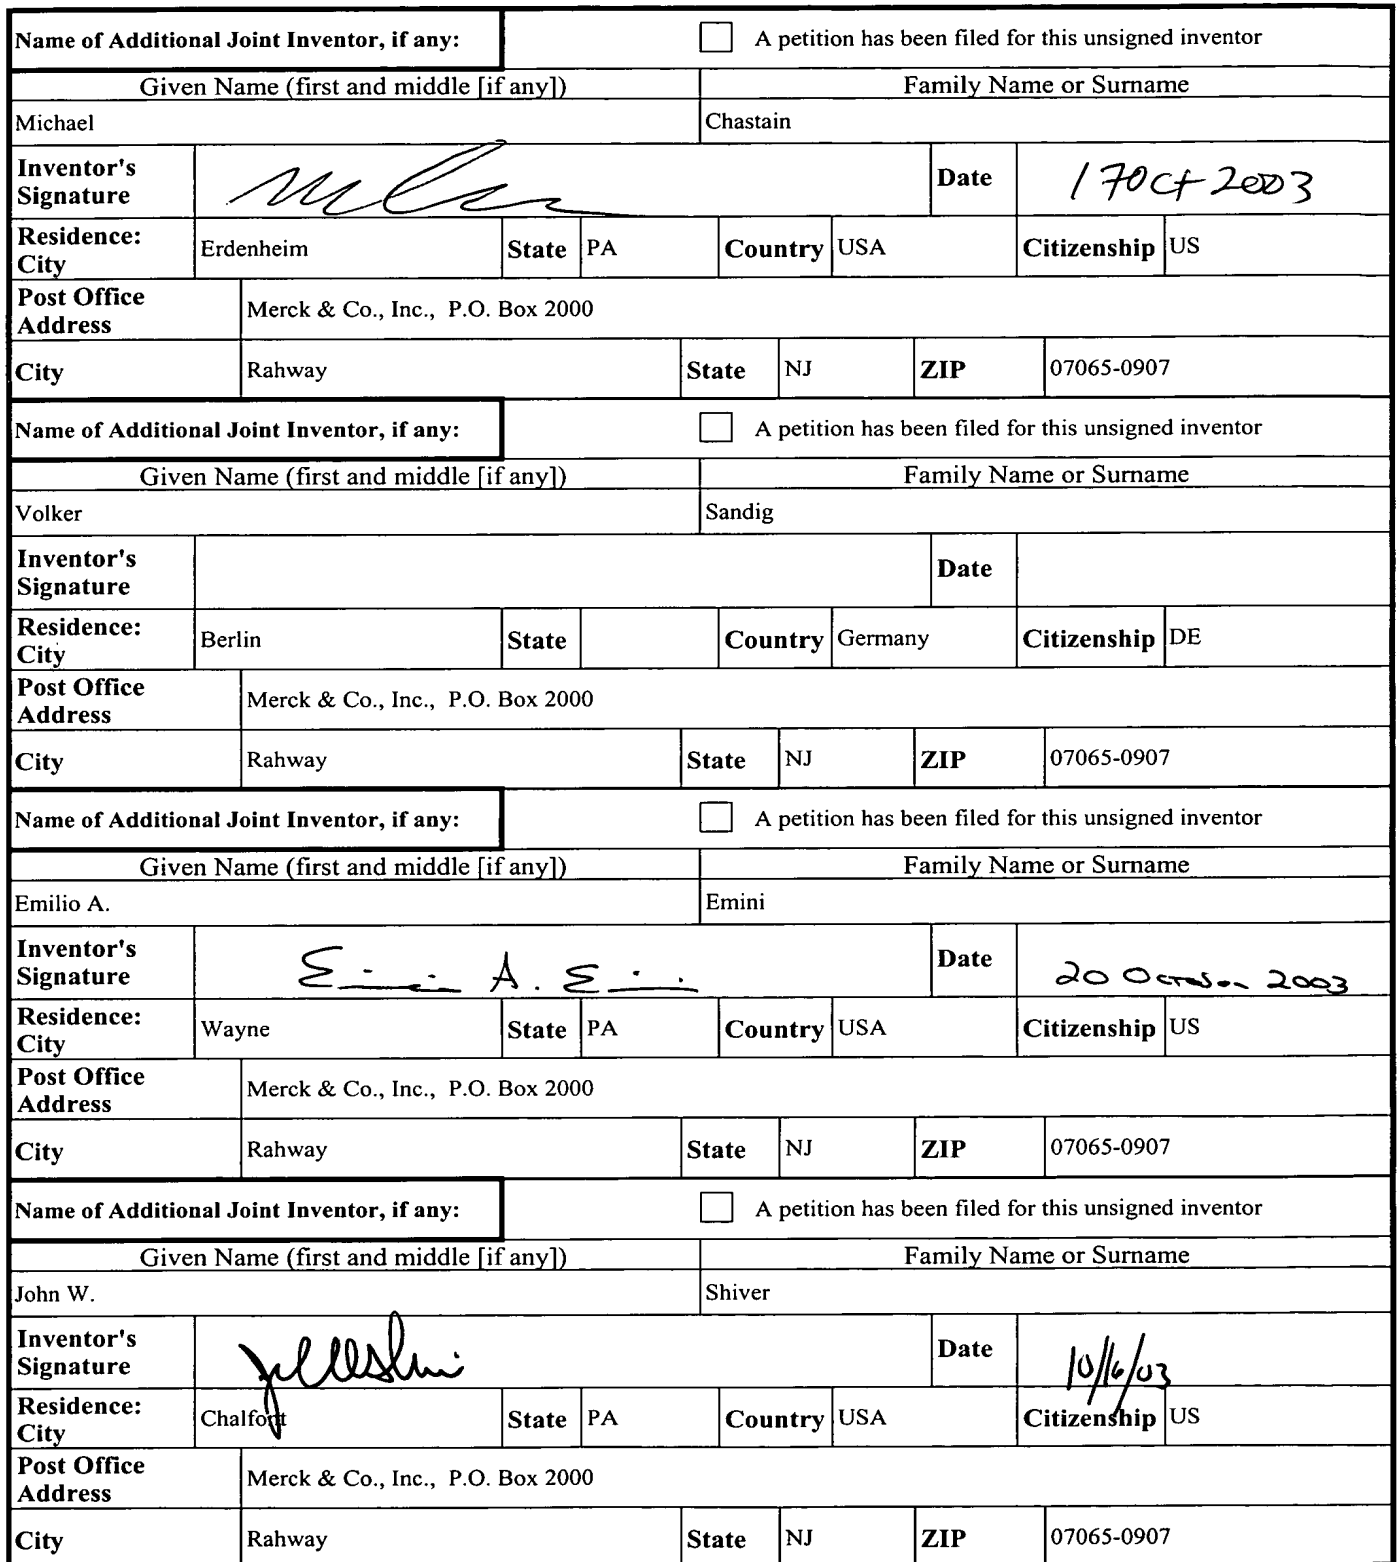 Name of Additional Joint Inventor, if any: A petition has been filed for this unsigned inventor
Given Name (first and middle [if any]) Family Name or Surname
Michael Chastain
Inventor's Signature Date 17 Oct 2003
Residence: City Erdenheim State PA Country USA Citizenship US
Post Office Address Merck & Co., Inc., P.O. Box 2000
City Rahway State NJ ZIP 07065-0907
Name of Additional Joint Inventor, if any: A petition has been filed for this unsigned inventor
Given Name (first and middle [if any]) Family Name or Surname
Volker Sandig
Inventor's Signature Date
Residence: City Berlin State Country Germany Citizenship DE
Post Office Address Merck & Co., Inc., P.O. Box 2000
City Rahway State NJ ZIP 07065-0907
Name of Additional Joint Inventor, if any: A petition has been filed for this unsigned inventor
Given Name (first and middle [if any]) Family Name or Surname
Emilio A. Emini
Inventor's Signature Emilio A. Emini Date 20 October 2003
Residence: City Wayne State PA Country USA Citizenship US
Post Office Address Merck & Co., Inc., P.O. Box 2000
City Rahway State NJ ZIP 07065-0907
Name of Additional Joint Inventor, if any: A petition has been filed for this unsigned inventor
Given Name (first and middle [if any]) Family Name or Surname
John W. Shiver
Inventor's Signature Date 10/16/03
Residence: City Chalfont State PA Country USA Citizenship US
Post Office Address Merck & Co., Inc., P.O. Box 2000
City Rahway State NJ ZIP 07065-0907